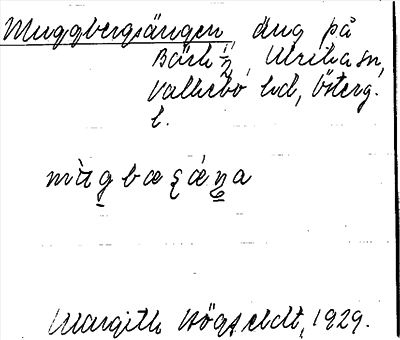 Muggbergsängen, äng på
Bäck ½, Ulrika sn,
Valkebo hd, Österg.
l.
mùg bæʂ ǽŋa
Margith Högfeldt, 1929.